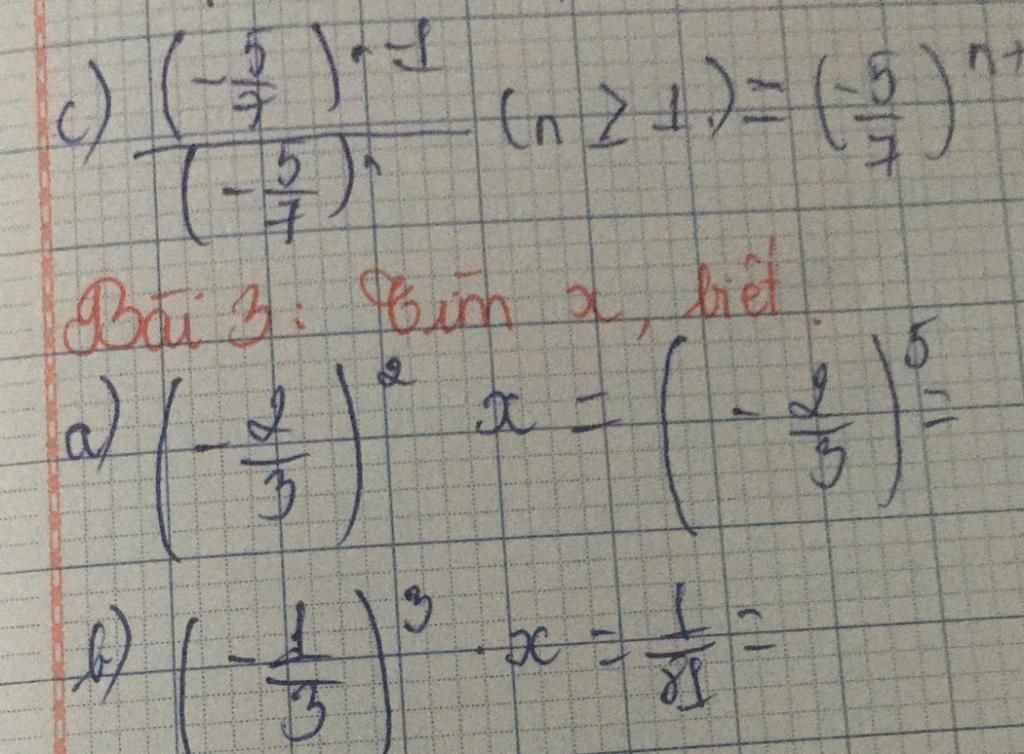 c) (-5/7)^{n-1} / (-5/7)^n (n ≥ 1) = (-5/7)^{n+
Bài 3: Tìm x, biết.
a) (-2/3)^2 x = (-2/3)^5 =
b) (-1/3)^3 . x = 1/81 =